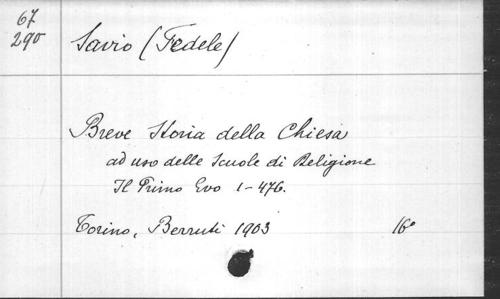 67
290
Savio (Fedele)
Breve Storia della Chiesa
ad uso delle Scuole di Religione
Il Primo Evo 1-476.
Torino, Berruti 1903 16°